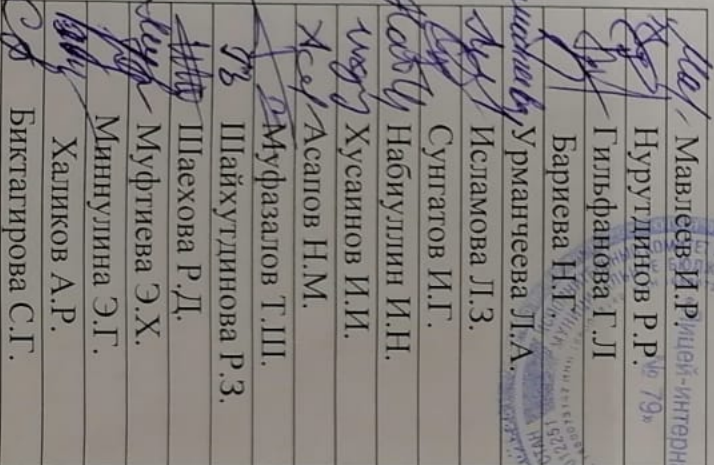 Мавлеев И.Р.
Нурутдинов Р.Р.
Гильфанова Г.Л
Бариева Н.Г.
Урманчеева Л.А.
Исламова Л.З.
Сунгатов И.Г.
Набиуллин И.Н.
Хусаинов И.И.
Асапов Н.М.
Муфазалов Т.Ш.
Шайхутдинова Р.З.
Шаехова Р.Д.
Муфтиева Э.Х.
Миннулина Э.Г.
Халиков А.Р.
Биктагирова С.Г.
«Лицей-интерн
№ 79»